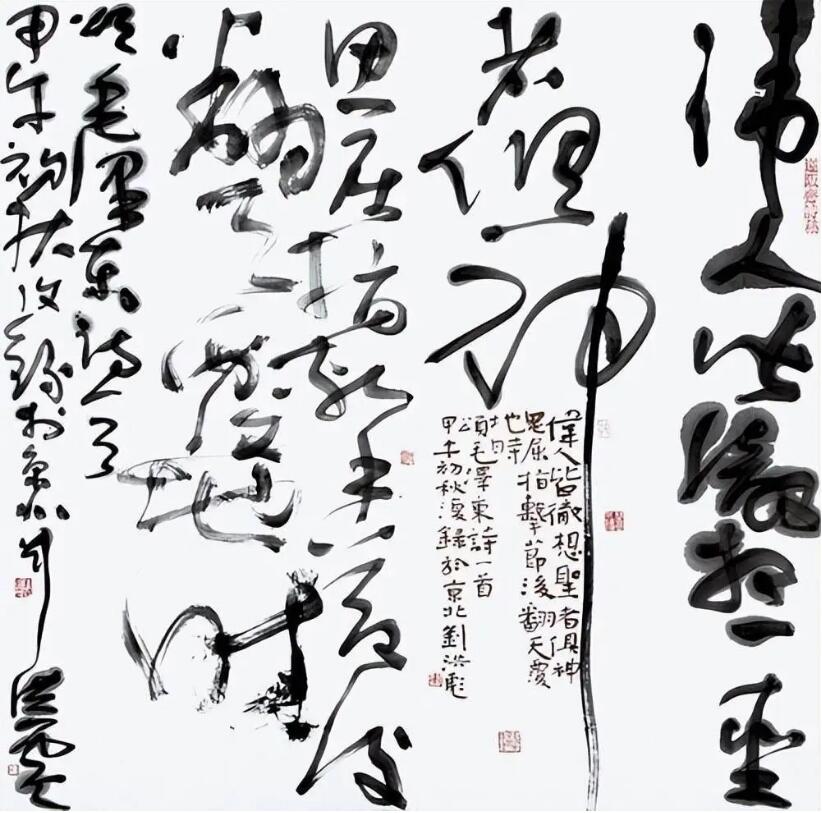 偉人皆徹想聖
者俱神
偉人皆徹想聖者俱神
思屈指擊節後翻天覆
地時
頌毛澤東詩一首
甲午初秋漫錄於京北劉洪彪
思屈指擊節後
翻天覆地時
頌毛澤東詩一首
甲午初秋漫錄於京北劉洪彪